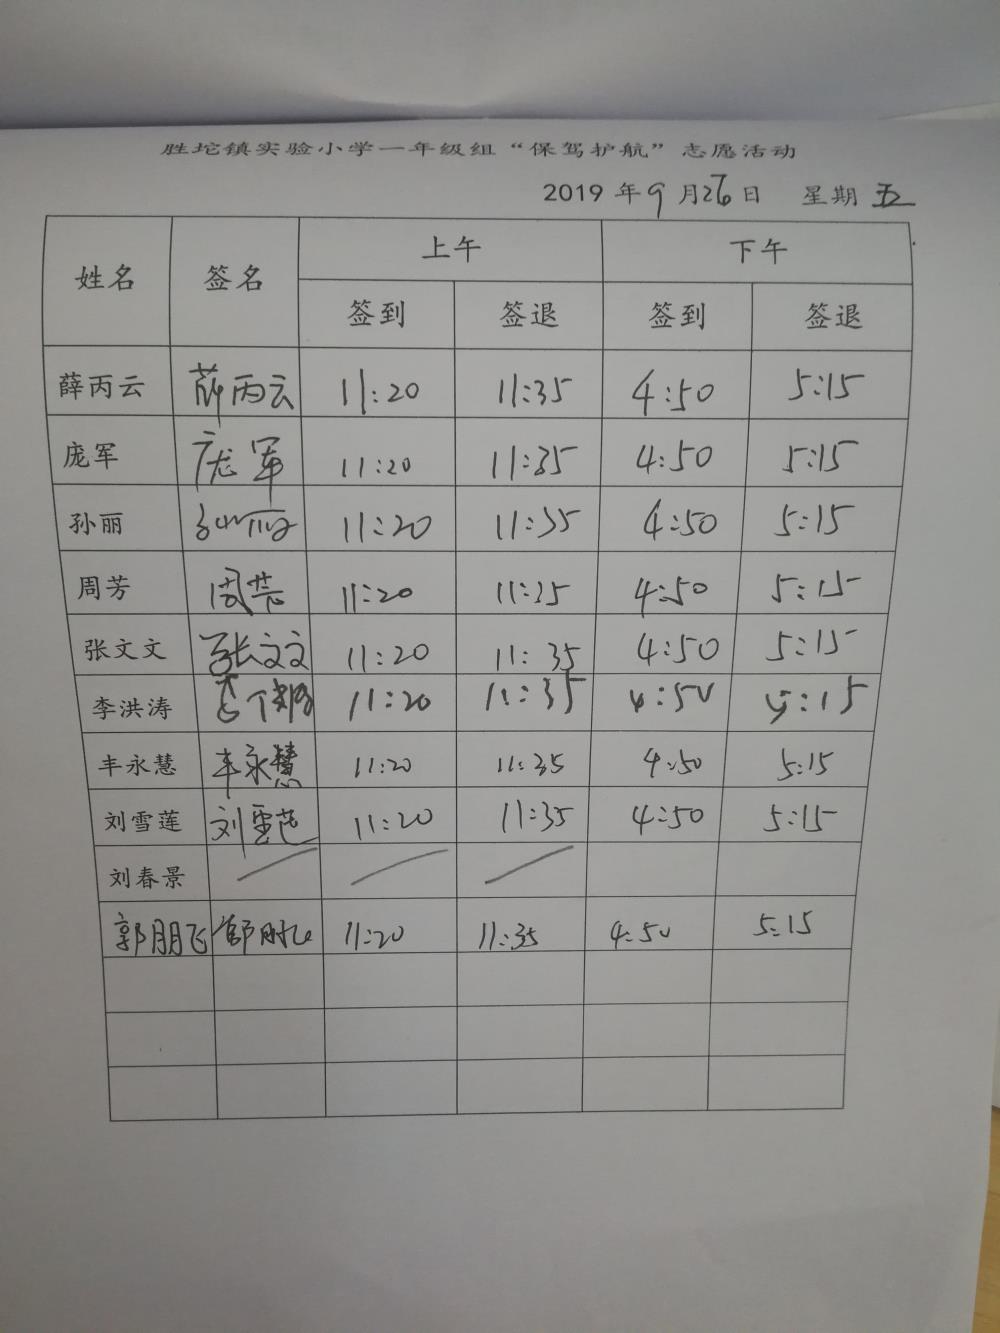 胜坨镇实验小学一年级组“保驾护航”志愿活动
2019 年 9 月 26 日 星期 五
姓名 签名 上午 下午
签到 签退 签到 签退
薛丙云 薛丙云 11:20 11:35 4:50 5:15
庞军 庞军 11:20 11:35 4:50 5:15
孙丽 孙丽 11:20 11:35 4:50 5:15
周芳 周芳 11:20 11:35 4:50 5:15
张文文 张文文 11:20 11:35 4:50 5:15
李洪涛 11:20 11:35 4:50 5:15
丰永慧 丰永慧 11:20 11:35 4:50 5:15
刘雪莲 刘雪莲 11:20 11:35 4:50 5:15
刘春景
郭朋飞 郭朋飞 11:20 11:35 4:50 5:15